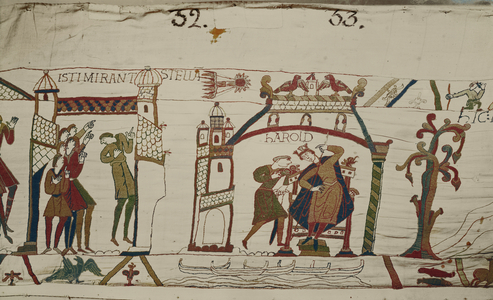 32. 33.
ISTI MIRANT STELLA
HAROLD
HIC